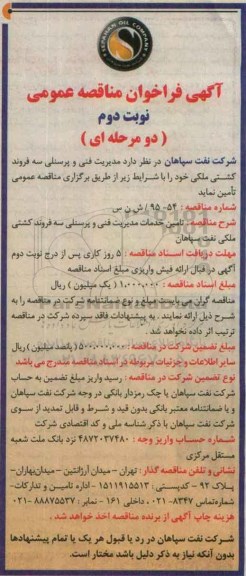 SEPAHAN OIL COMPANY
آگهی فراخوان مناقصه عمومی
نوبت دوم
( دو مرحله ای )
شرکت نفت سپاهان در نظر دارد مدیریت فنی و پرسنلی سه فروند
کشتی ملکی خود را با شرایط زیر از طریق برگزاری مناقصه عمومی
تأمین نماید
شماره مناقصه : ۵۴- ۹۵ / ش ن س
شرح مناقصه : تامین خدمات مدیریت فنی و پرسنلی سه فروند کشتی
ملکی نفت سپاهان
مهلت دریافت اسناد مناقصه : ۵ روز کاری پس از درج نوبت دوم
آگهی در قبال ارائه فیش واریزی مبلغ اسناد مناقصه
مبلغ اسناد مناقصه : ۱,۰۰۰,۰۰۰ ( یک میلیون ) ریال
مناقصه گران می بایست مبلغ و نوع ضمانتنامه شرکت در مناقصه را به
شرح ذیل ارائه نمایند . به پیشنهادات فاقد سپرده شرکت در مناقصه
ترتیب اثر داده نخواهد شد .
مبلغ تضمین شرکت در مناقصه : ۵۰۰,۰۰۰,۰۰۰ ( پانصد میلیون ) ریال
سایر اطلاعات و جزئیات مربوطه در اسناد مناقصه مندرج می باشد
نوع تضمین شرکت در مناقصه : رسید واریز مبلغ تضمین به حساب
شرکت نفت سپاهان یا چک رمزدار بانکی در وجه شرکت نفت سپاهان
و یا ضمانتنامه معتبر بانکی بدون قید و شرط و قابل تمدید از سوی
شرکت نفت سپاهان با ذکر شناسه ملی و کد اقتصادی شرکت
شماره حساب واریز وجه : ۴۸۷۲۰۳۷۴۸۰ نزد بانک ملت شعبه
مستقل مرکزی
نشانی و تلفن مناقصه گذار : تهران - میدان آرژانتین - میدان بهاران-
پلاک ۹۲ - کدپستی : ۱۵۱۱۹۱۵۵۱۳ - اداره تامین و تدارکات-
شماره تماس ۸۳۴۷-۰۲۱ ، داخلی ۱۶۱ - نمابر : ۸۸۸۷۵۵۳۷-۰۲۱
هزینه چاپ آگهی از برنده مناقصه اخذ خواهد شد .
شرکت نفت سپاهان در رد یا قبول هر یک یا تمام پیشنهادها
بدون آنکه نیاز به ذکر دلیل باشد مختار است.